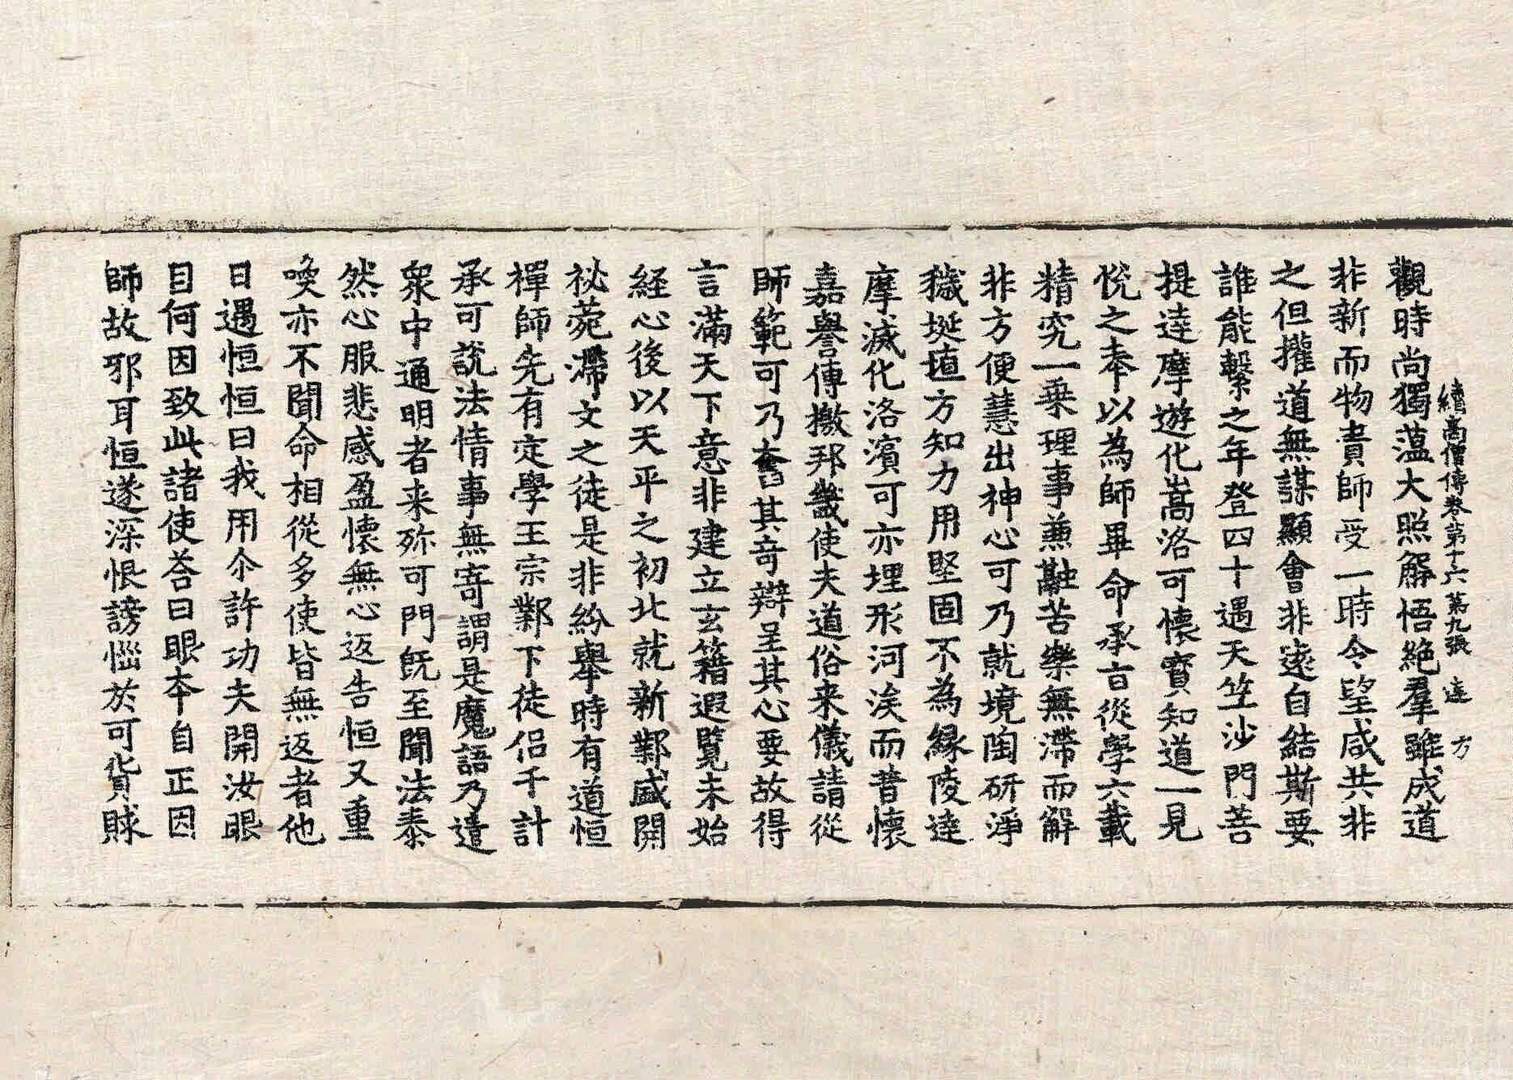 續高僧傳卷第十六 第九張 達 方
觀時尚獨蕰大照解悟絶羣雖成道
非新而物貴師受一時令望咸共非
之但攉道無謀顯會非遠自結斯要
誰能繫之年登四十遇天竺沙門菩
提達摩遊化嵩洛可懷寶知道一見
悅之奉以為師畢命承旨從學六載
精究一乗理事兼融苦樂無滯而解
非方便慧出神心可乃就境陶研淨
穢埏埴方知力用堅固不為縁陵達
摩滅化洛濱可亦埋形河涘而昔懷
嘉譽傳檄邦畿使夫道俗来儀請從
師範可乃奮其奇辯呈其心要故得
言滿天下意非建立玄籍遐覽未始
経心後以天平之初北就新鄴盛開
祕菀滯文之徒是非紛舉時有道恒
禪師先有定學王宗鄴下徒侣千計
承可說法情事無寄謂是魔語乃遣
衆中通明者来殄可門旣至聞法泰
然心服悲感盈懷無心返告恒又重
喚亦不聞命相從多使皆無返者他
日遇恒恒曰我用尒許功夫開汝眼
目何因致此諸使荅曰眼本自正因
師故邪耳恒遂深恨謗惱於可貨賕